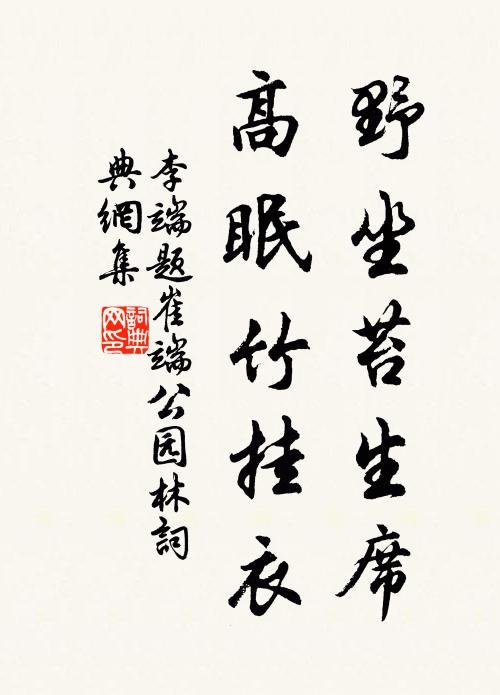 野坐苔生席
高眠竹挂衣
李端题崔端公园林詞
典網集
詞典网印